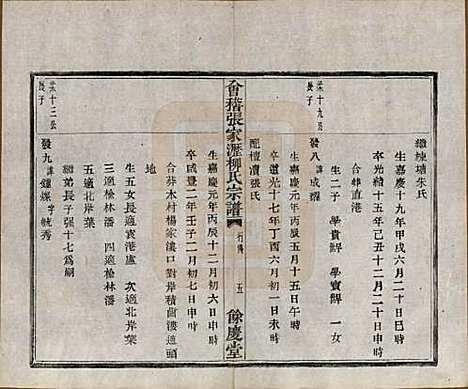 繼娶塘朱氏
生嘉慶十九年甲戌六月二十日巳時
卒光緒十五年己丑十二月二十日申時
合葬直港
榮十九長
長子
發八諱成燿
生二子 學貴 學寶 一女
生嘉慶元年丙辰五月十五日午時
卒道光十七年丁酉六月初一日未時
配檀瀆張氏
會稽張家瀝柳氏宗譜
行傳
五
餘慶堂
生嘉慶元年丙辰十二月初六日申時
卒咸豐二年壬子二月初七日申時
合葬木村楊家溇口對岸積菌溇道頭
地
生五女長適袁港盧 次適北岸葉
三適榆林潘 四適榆林潘
五適北岸葉
繼弟長子張十七爲嗣
榮十三長
長子
發九諱鍾燦字毓秀